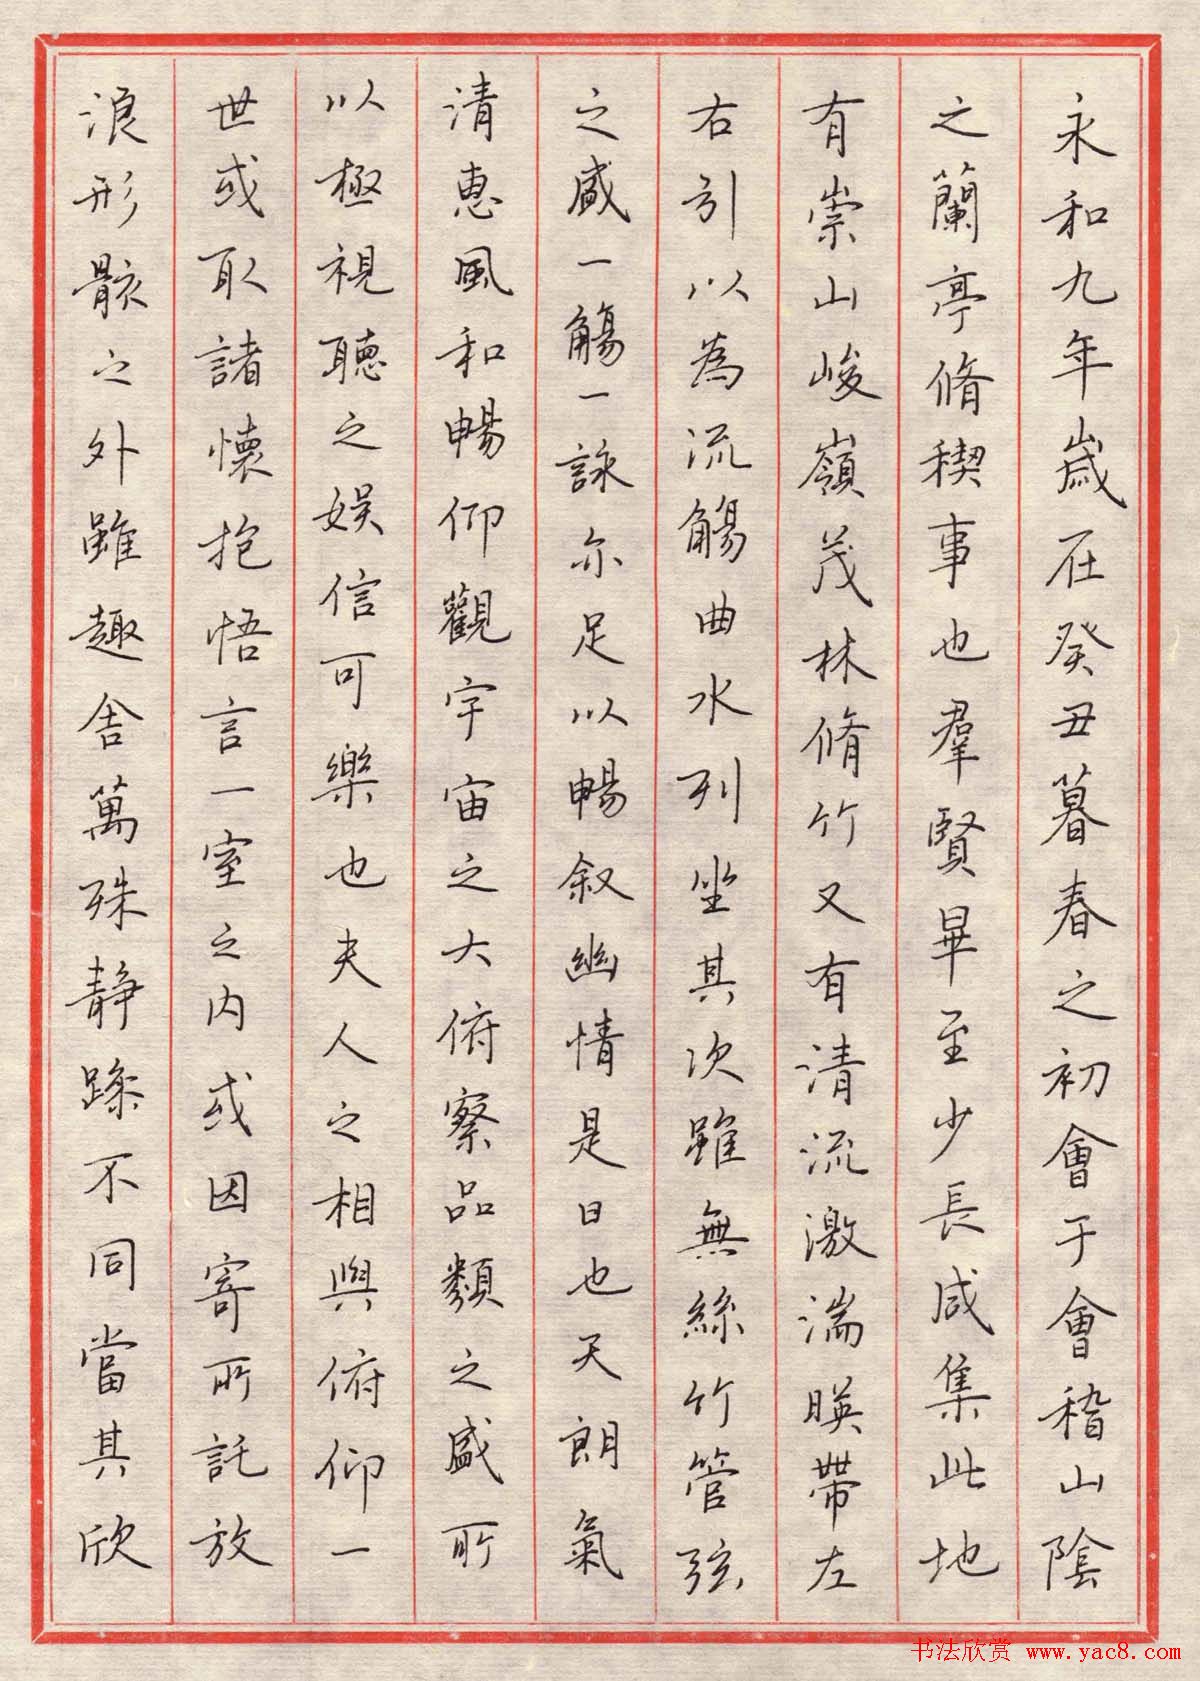 永和九年歲在癸丑暮春之初會于會稽山陰
之蘭亭脩稧事也羣賢畢至少長咸集此地
有崇山峻嶺茂林脩竹又有清流激湍暎帶左
右引以為流觴曲水列坐其次雖無絲竹管弦
之盛一觴一詠亦足以暢叙幽情是日也天朗氣
清惠風和暢仰觀宇宙之大俯察品類之盛所
以極視聽之娱信可樂也夫人之相與俯仰一
世或取諸懷抱悟言一室之内或因寄所託放
浪形骸之外雖趣舎萬殊静躁不同當其欣
书法欣赏 www.yac8.com